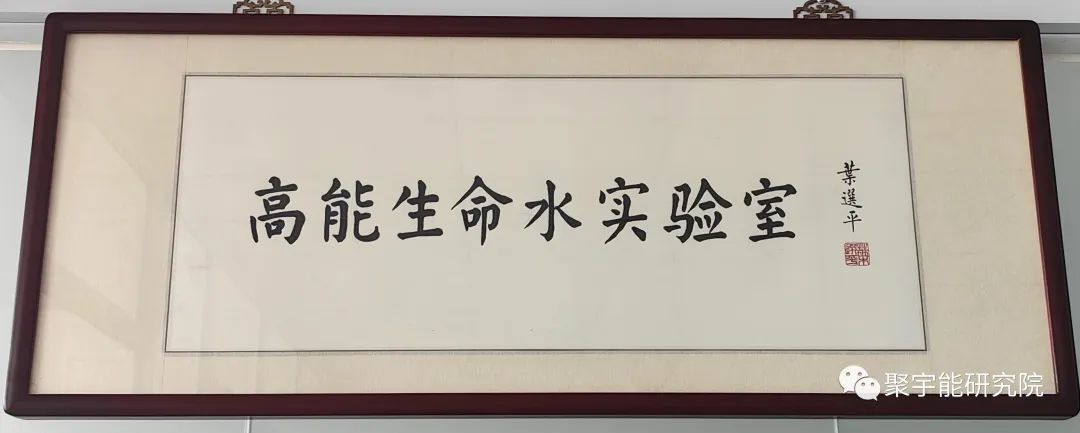 高能生命水实验室
葉選平
聚宇能研究院